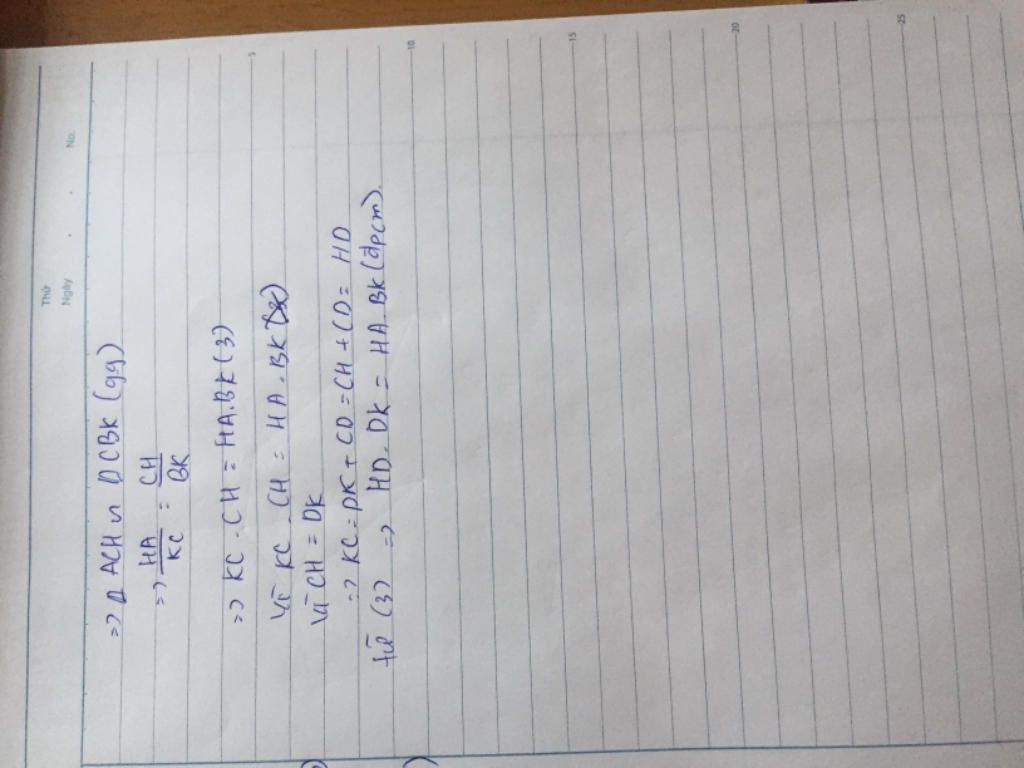 Thứ
Ngày
No.
=> Δ ACH ∽ Δ CBK (gg)
=> HA/KC = CH/BK
=> KC . CH = HA.BK (3)
Vì KC . CH = HA . BK
Vì CH = DK
=> KC = DK + CD = CH + CD = HD
từ (3) => HD . DK = HA . BK (đpcm).
5
10
15
20
25